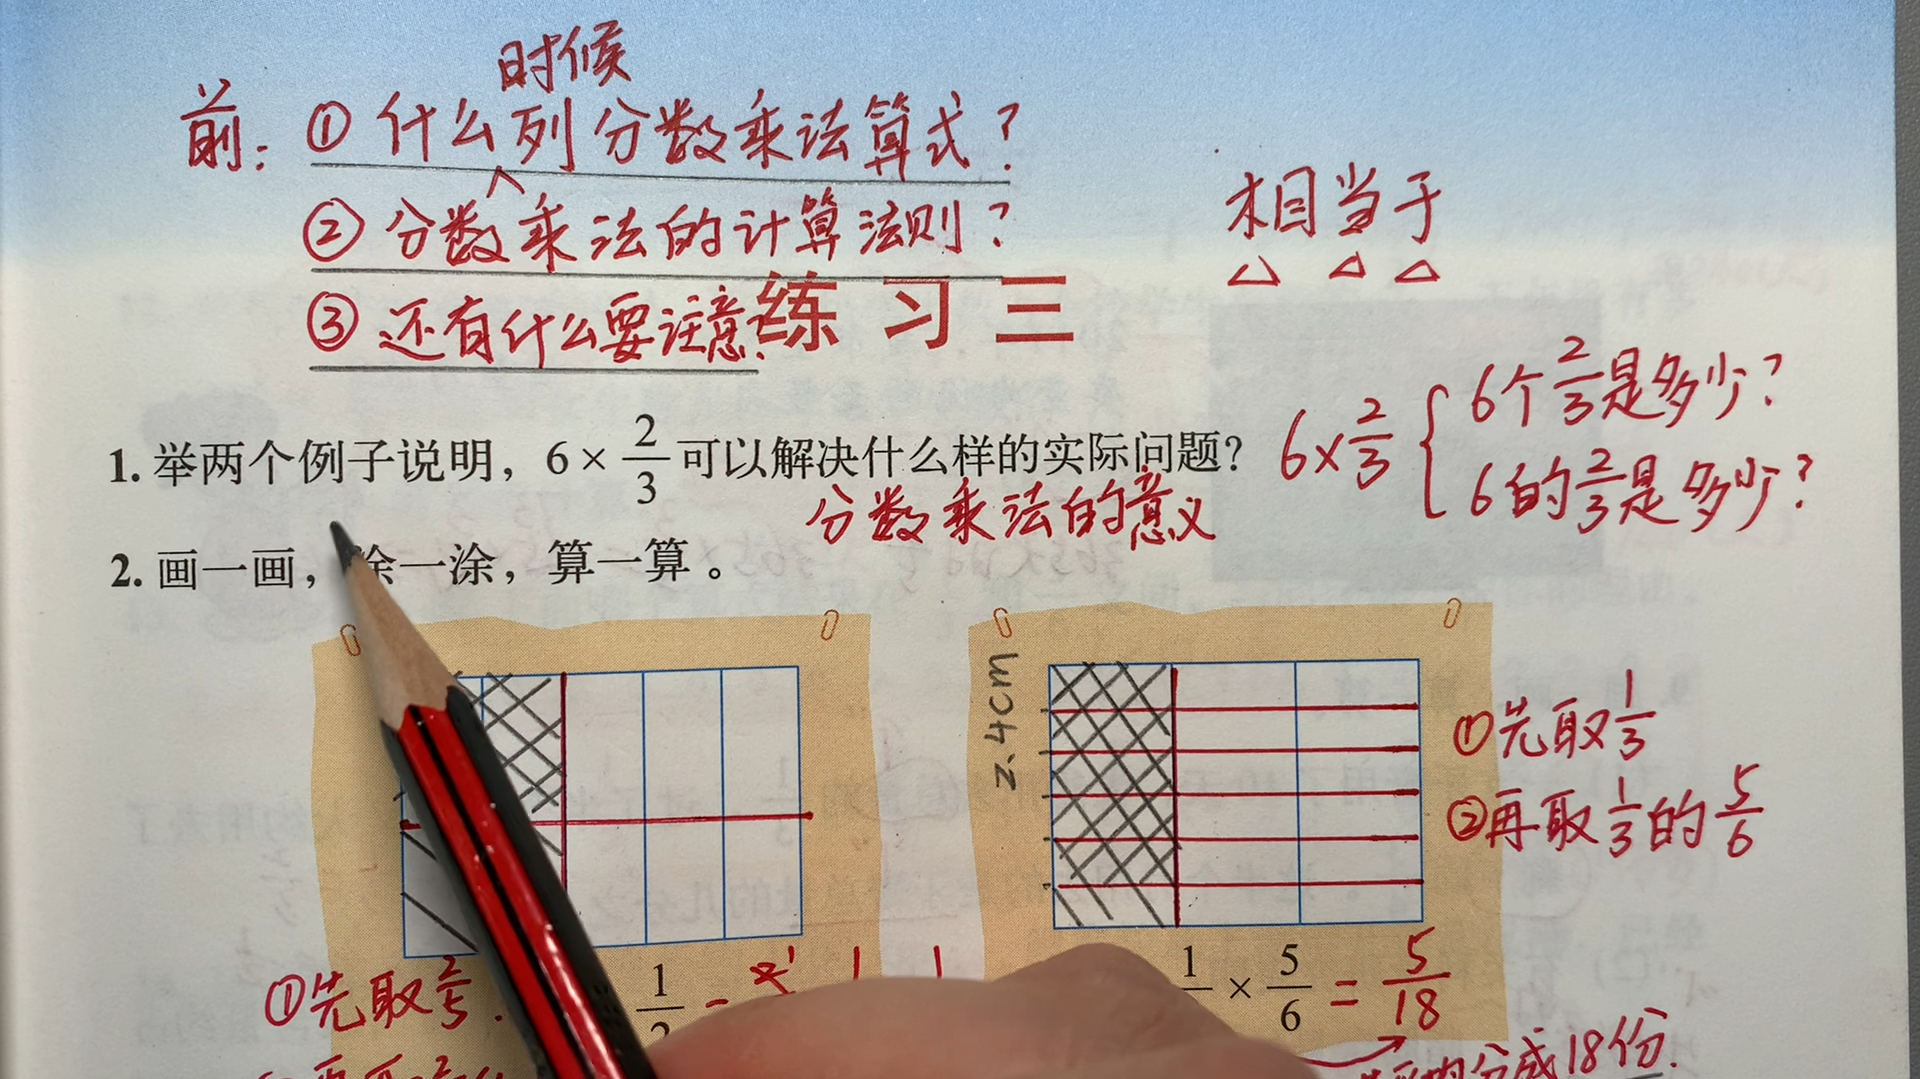 时候
前：①什么列分数乘法算式？
②分数乘法的计算法则？
相当于
③还有什么要注意？
练习三
1. 举两个例子说明，6 × 2/3 可以解决什么样的实际问题？
分数乘法的意义
6×2/3 { 6个2/3是多少？
6的2/3是多少？
2. 画一画，涂一涂，算一算。
2.4cm
①先取1/3
②再取1/3的5/6
①先取2/5.
1/3 × 5/6 = 5/18
分成18份.